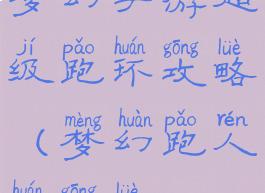 jí pǎo huán gōng lüè
级跑环攻略
mèng huàn pǎo rén
(梦幻跑人
huán gōng lüè